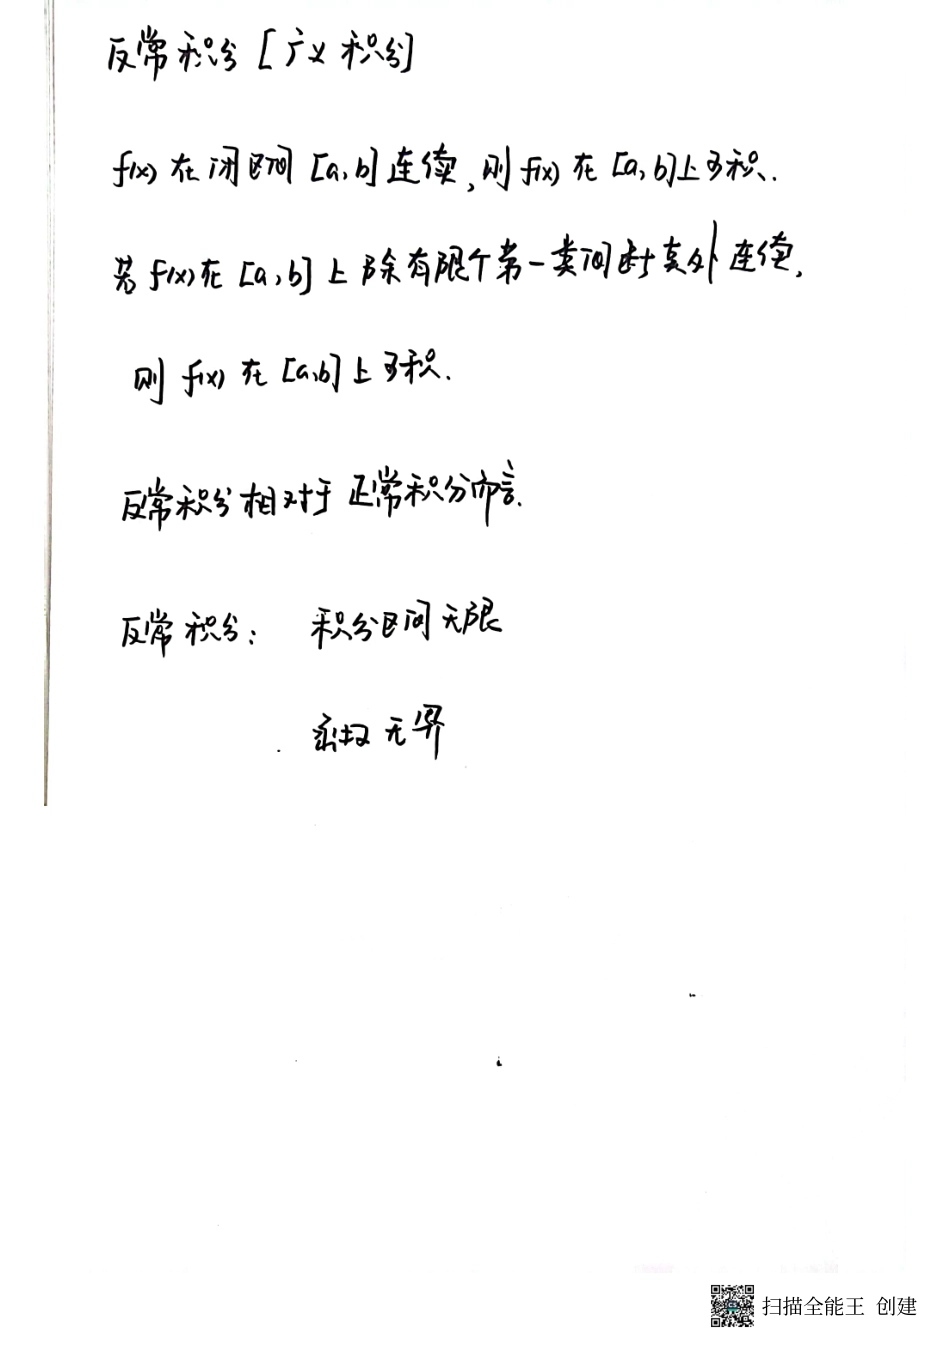 反常积分 [广义积分]
f(x) 在闭区间 [a, b] 连续, 则 f(x) 在 [a, b] 上可积.
若 f(x) 在 [a, b] 上除有限个第一类间断点外连续,
则 f(x) 在 [a,b] 上可积.
反常积分相对于正常积分而言.
反常积分: 积分区间无限
函数无界
扫描全能王 创建